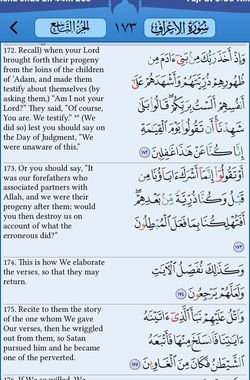 سُورَةُ الأَعْرَافِ ١٧٣ الجُزْءُ التَّاسِعُ
172. Recall) when your Lord
brought forth their progeny
from the loins of the children
of 'Adam, and made them
testify about themselves (by
asking them,) "Am I not your
Lord?" They said, "Of course,
You are. We testify." *° (We
did so) lest you should say on
the Day of Judgment, "We
were unaware of this,"
وَإِذْ أَخَذَ رَبُّكَ مِنۢ بَنِىٓ ءَادَمَ مِن
ظُهُورِهِمْ ذُرِّيَّتَهُمْ وَأَشْهَدَهُمْ عَلَىٰٓ
أَنفُسِهِمْ أَلَسْتُ بِرَبِّكُمْ قَالُوا۟ بَلَىٰ
شَهِدْنَآ أَن تَقُولُوا۟ يَوْمَ ٱلْقِيَـٰمَةِ
إِنَّا كُنَّا عَنْ هَـٰذَا غَـٰفِلِينَ ١٧٢
173. Or you should say, "It
was our forefathers who
associated partners with
Allah, and we were their
progeny after them; would
you then destroy us on
account of what the
erroneous did?"
أَوْ تَقُولُوٓا۟ إِنَّمَآ أَشْرَكَ ءَابَآؤُنَا مِن
قَبْلُ وَكُنَّا ذُرِّيَّةً مِّنۢ بَعْدِهِمْ
أَفَتُهْلِكُنَا بِمَا فَعَلَ ٱلْمُبْطِلُونَ
١٧٣
174. This is how We elaborate
the verses, so that they may
return.
وَكَذَٰلِكَ نُفَصِّلُ ٱلْـَٔايَـٰتِ
وَلَعَلَّهُمْ يَرْجِعُونَ ١٧٤
175. Recite to them the story
of the one whom We gave
Our verses, then he wriggled
out from them, so Satan
pursued him and he became
one of the perverted.
وَٱتْلُ عَلَيْهِمْ نَبَأَ ٱلَّذِىٓ ءَاتَيْنَـٰهُ
ءَايَـٰتِنَا فَٱنسَلَخَ مِنْهَا فَأَتْبَعَهُ
ٱلشَّيْطَـٰنُ فَكَانَ مِنَ ٱلْغَاوِينَ ١٧٥